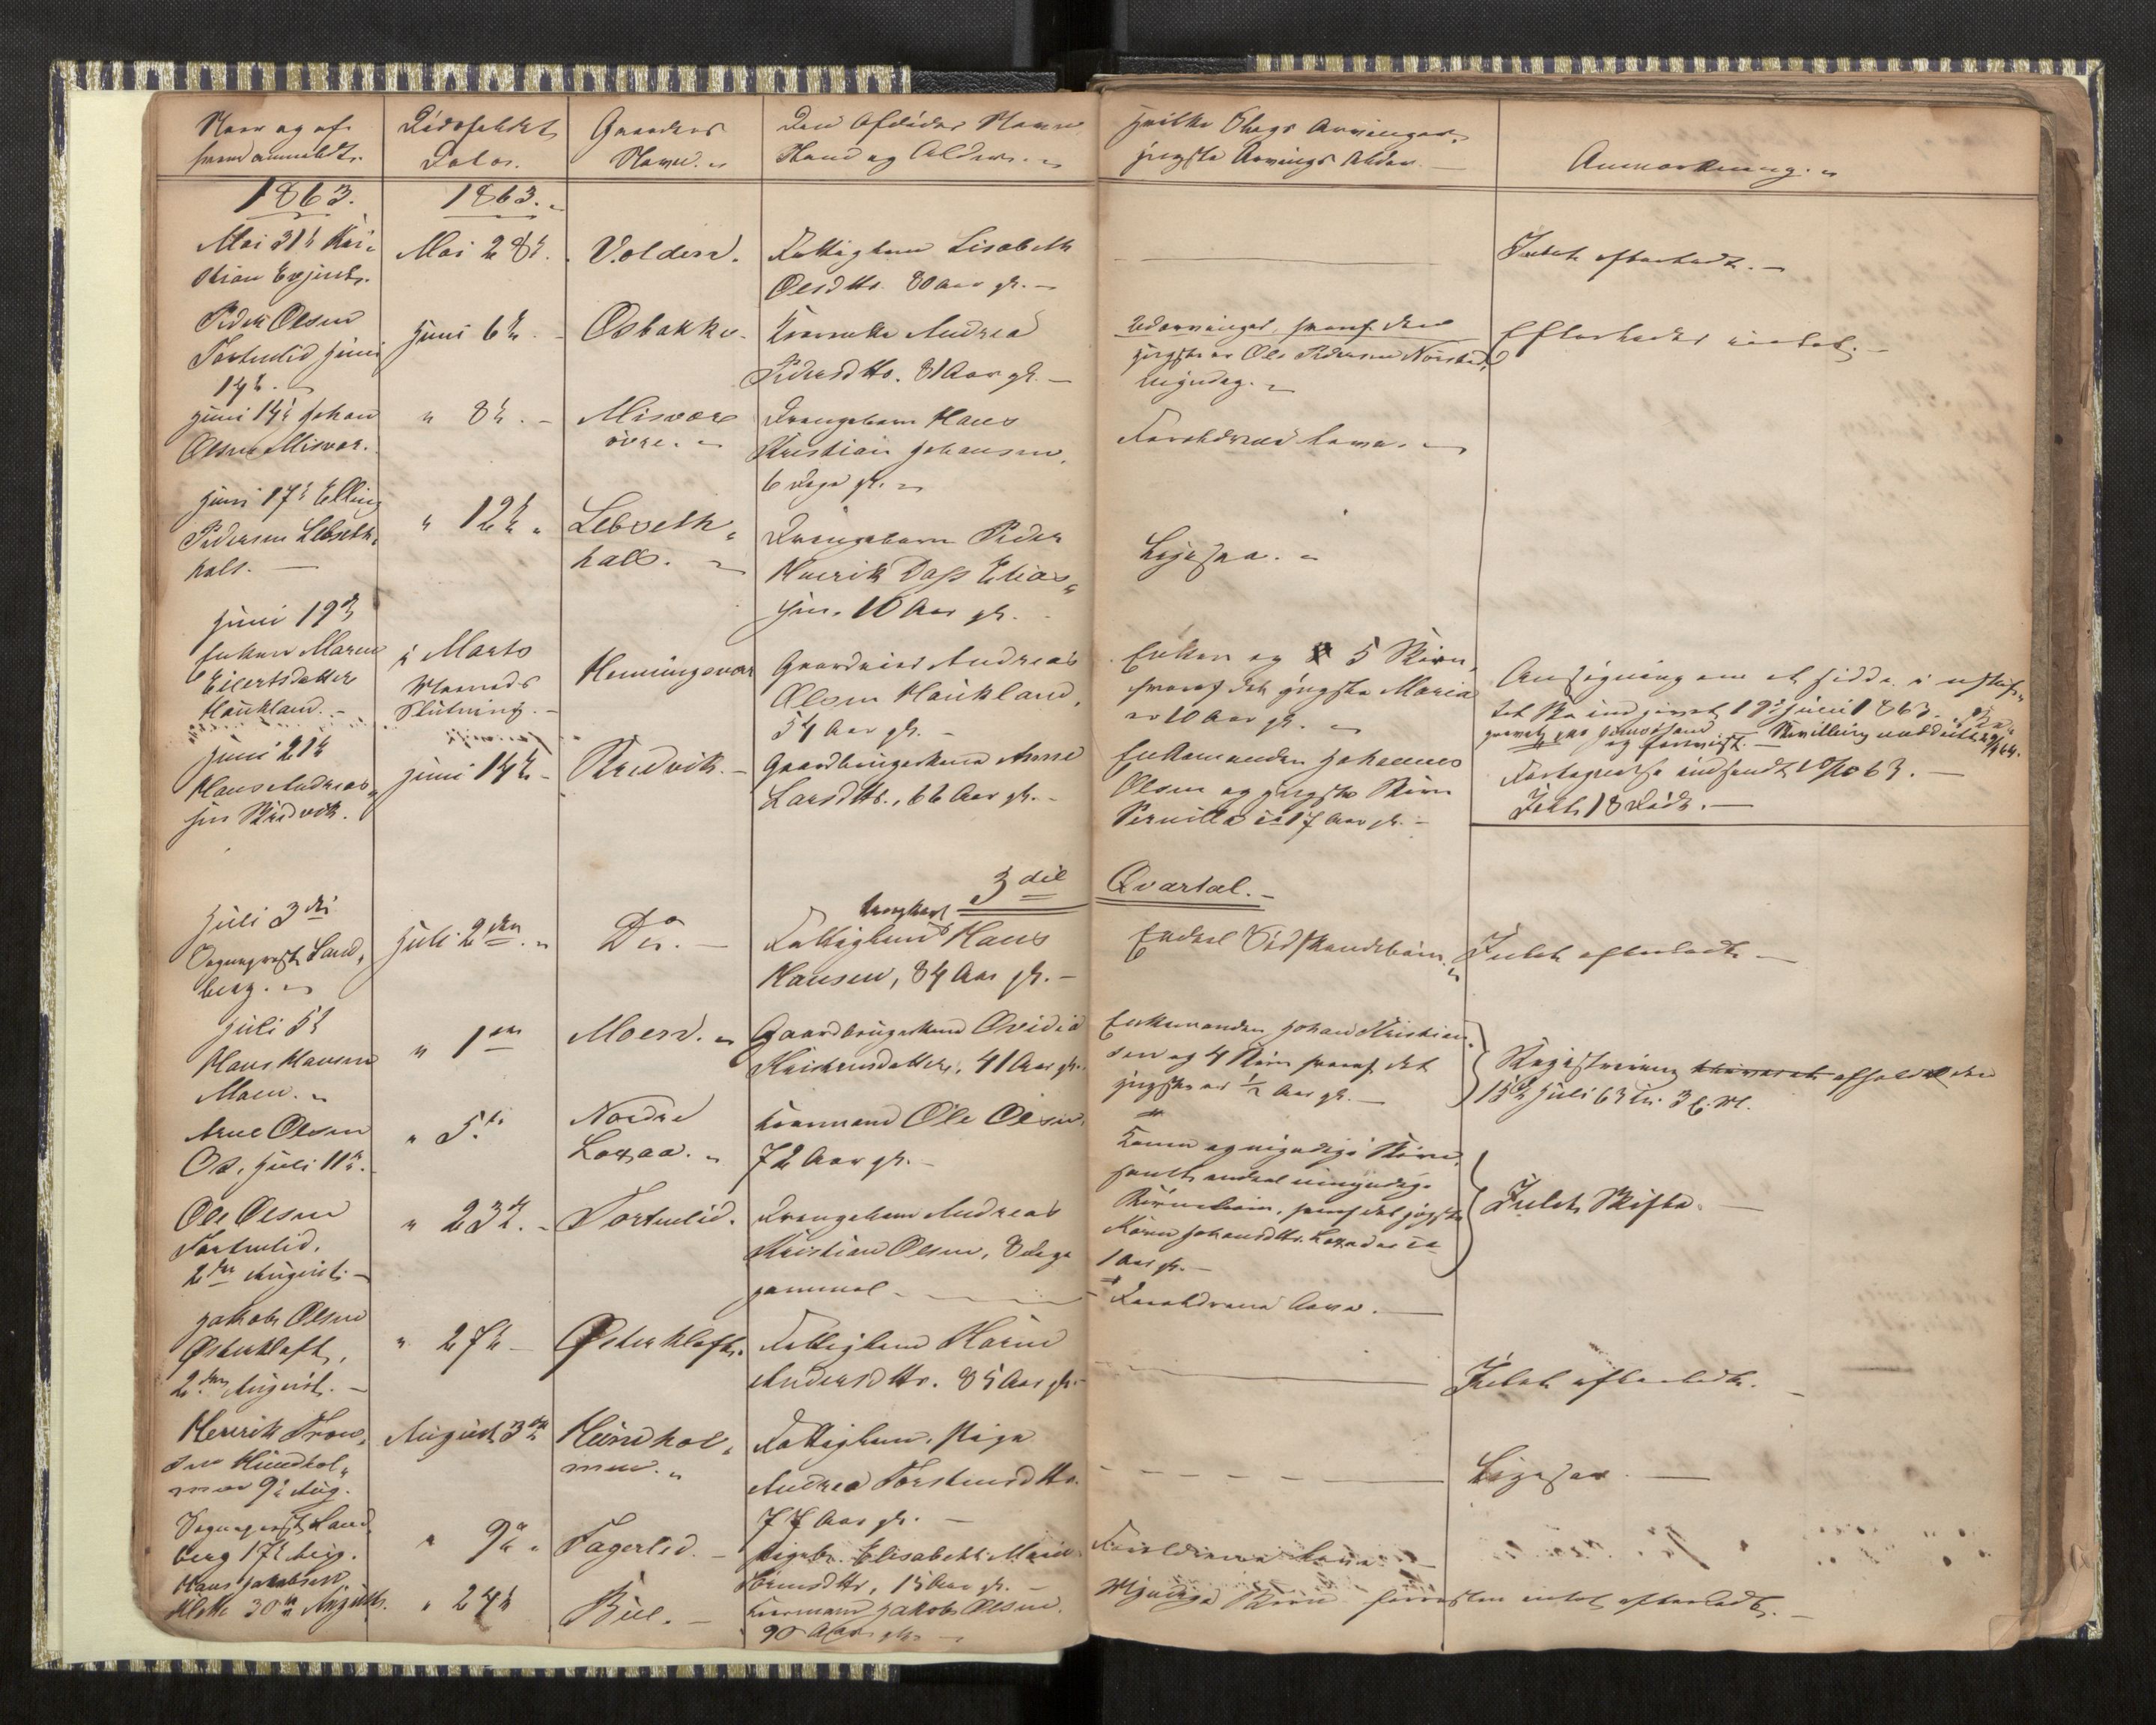 Naar og af
hvem anmeldt.
Dødsfaldets
Datos.
Gaardens
Navn.
Den Afdødes Navn
Stand og Alder.
hvilke Slags Arvinger,
yngste Arvings Alder.
Anmærkning.
1863.
1863.
Mai 31te Kri-
stian Evjent.
Mai 28de.
Volden.
Fattiglem Lisabeth
Olsdtr. 80 Aar gl.
Intet efterladt.
Peder Olsen
Tortenlid juni
14de.
juni 6te.
Osbakke.
Kaarenke Andrea
Pedersdtr. 81 Aar gl.
Udarvinger, hvoraf den
yngste er Ole Pedersen
myndig.
Efterlader intet.
juni 14de Johan
Olsen Misvær.
" 8de.
Misvær
øvre.
Drengebarn Hans
Kristian Johansen,
6 Dage gl.
Forældrene leve.
juni 17de Elling
Pedersen Lebseth-
hals.
" 12te
Lebseth-
hals.
Drengebarn Peder
Henrik Dass Elias-
sen. 10 Aar gl.
Ligesaa.
juni 19de
Enken Maren
Eilertsdatter
Haukland.
i Marts
Maaneds
Slutning.
Henningsvær
Gaardmand Andreas
Olsen Haukland,
54 Aar gl.
Enken og 5 Børn,
hvoraf det yngste Maria
er 10 Aar gl.
Ansøgning om at sidde i uskif-
tet Bo indgivet 19de juni 1863.
Bevilling meddeelt
juni 21de
Hans Andreas-
sen Bredvik.
juni 14de
Bredvik.
Gaardbrugerkone Anne
Larsdtr., 66 Aar gl.
Enkemanden Johannes
Olsen og yngste Barn
Pernilla er 17 Aar gl.
Fortegnelse indsendt
3die Qvartal.
juli 3die
Sogneprest Sand-
berg.
juli 2den.
Du.
Fattiglem Hans
Hansen, 84 Aar gl.
Endeel Sødskendebørn.
Intet efterladt.
juli 5te
Hans Hansen
Moen.
" 1ste
Moen.
Gaardbrugerkone Ovidia
Kristensdatter, 41 Aar gl.
Enkemanden Johan Kristian-
sen og 4 Børn hvoraf det
yngste er 1/2 Aar gl.
Registrering afholdt den
15de juli 63
Arne Olsen
Os, juli 11te.
" 5te
Nordre
Loxaa.
Kaarmand Ole Olsen,
72 Aar gl.
Konen og myndige Børn,
samt endeel umyndige
Børnebørn, hvoraf det yngste
Karen Johansdtr. Loxaa er ca
1 Aar gl.
Intet Skifte.
Ole Olsen
Tortenlid.
2den August.
" 23de.
Tortenlid.
Drengebarn Andreas
Kristian Olsen, 8 Dage
gammel
Forældrene leve.
Jakob Olsen
Østerkløft,
2den August.
" 27de
Østerkløft.
Fattiglem Karen
Andersdtr. 85 Aar gl.
Intet efterladt.
Henrik Tron-
sen Hundhol-
men 9de Aug.
August 3die
Hundhol-
men.
Fattiglem, Pige
Andrea Torstensdtr.
77 Aar gl.
Ligesaa.
Sogneprest Sand-
berg 17de Aug.
" 9de
Fagerlid.
Pigebn. Elisabeth Marie
15 Aar gl.
Forældrene leve.
Hans Jakobsen
Klette 30te August.
" 24de
Bue.
Kaarmand Jakob Olsen,
90 Aar gl.
Myndige Børn. forresten intet efterladt.